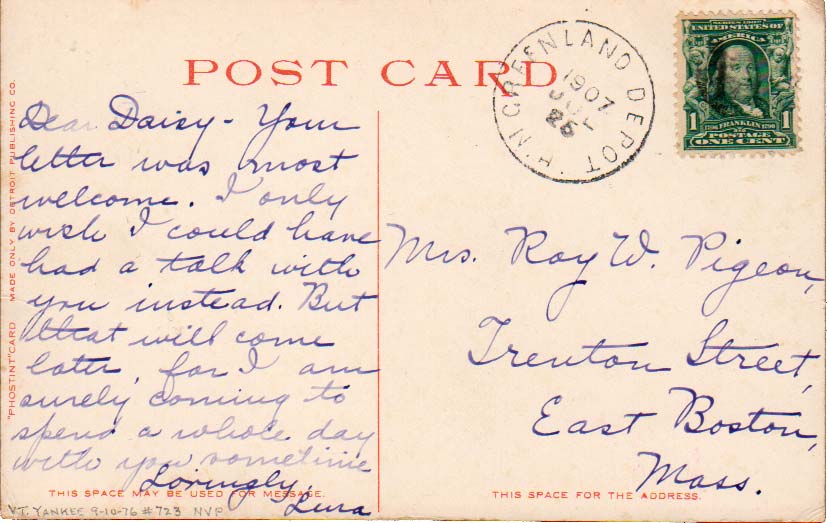 POST CARD
GREENLAND DEPOT N.H.
1907
JUL
25
SERIES 1902
UNITED STATES OF
AMERICA
1 1
1706 FRANKLIN 1790
POSTAGE
ONE CENT
Dear Daisy - Your
letter was most
welcome. I only
wish I could have
had a talk with
you instead. But
that will come
later, for I am
surely coming to
spend a whole day
with you sometime
Lovingly,
Lura
Mrs. Roy W. Pigeon,
Trenton Street,
East Boston,
Mass.
THIS SPACE MAY BE USED FOR MESSAGE.
THIS SPACE FOR THE ADDRESS.
"PHOSTINT" CARD MADE ONLY BY DETROIT PUBLISHING CO.
VT. YANKEE 9-10-76 #723 NVP